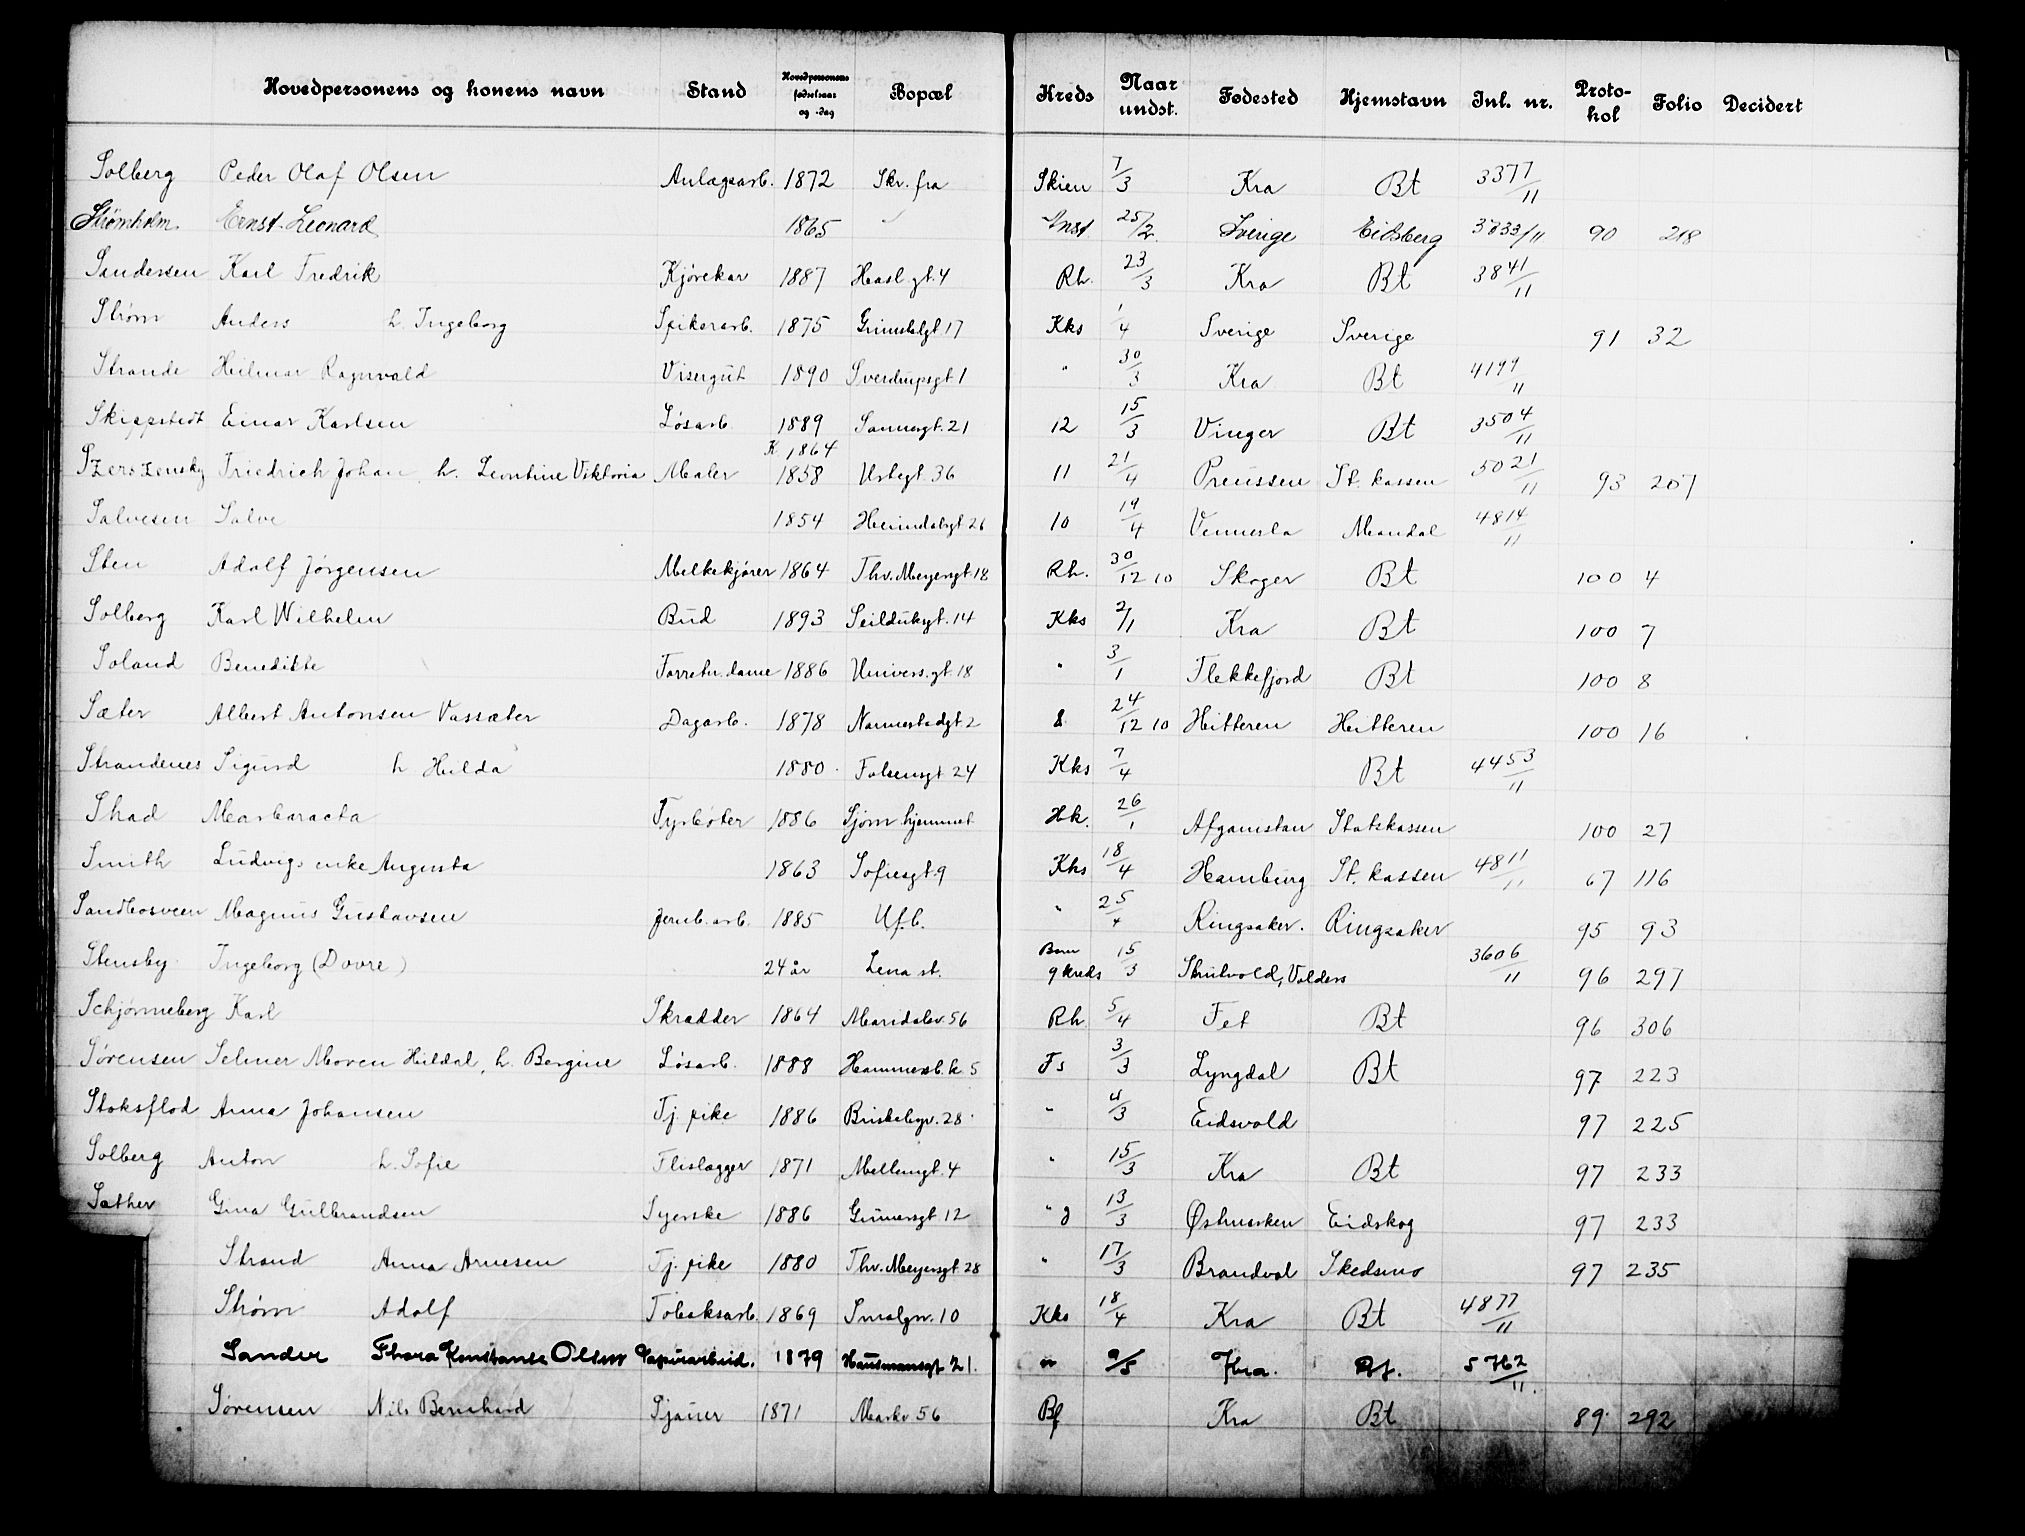 Hovedpersonens og konens navn Stand Hovedpersonens fødselsaar og -dag Bopæl Kreds Naar undst. Fødested Hjemstavn Inl. nr. Protokol Folio Decidert
Solberg Peder Olaf Olsen Anlægsarb. 1872 Skr. fra Skien 7/3 Kra Bt 3377/11
Strømholm Ernst Leonard 1865 25/2 Sverige Eidsberg 3833/11 90 218
Sandersen Karl Fredrik Kjørekar 1887 Hasl.gt. 4 Rh. 23/3 Kra Bt 3841/11
Strøm Anders h. Ingeborg Spikerarb. 1875 Grimstadgt 17 Kks 1/4 Sverige Sverige 91 32
Strande Hilmar Ragnvald Visergut 1890 Sverdrupsgt 1 " 30/3 Kra Bt 4199/11
Skippstedt Einar Karlsen Løsarb. 1889 Sannergt. 21 12 15/3 Vinger Bt 3504/11
K. 1864
Szerszensky Friedrich Johan h. Leontine Viktoria Maler 1858 Urtegt. 36 11 21/4 Preussen St. kassen 5021/11 93 207
Salvesen Salve 1854 Heimdalsgt 26 10 19/4 Vennesla Mandal 4814/11
Sten Adolf Jørgensen Melkekjører 1864 Thv. Meyersgt 18 Rh. 30/12 10 Skoger Bt 100 4
Solberg Karl Wilhelm Bud 1893 Seilduksgt. 14 Kks 2/1 Kra Bt 100 7
Soland Benedikte Forretn. dame 1886 Univers. gt. 18 " 3/1 Flekkefjord Bt 100 8
Sæter Albert Antonsen Vassæter Dagarb. 1878 Nannestadgt. 2 8 24/12 10 Hitteren Hitteren 100 16
Strandenes Sigurd h Hilda 1880 Falsensgt 24 Kks 7/4 Bt 4453/11
Shad Masbaracta Fyrbøter 1886 Sjøm. hjemmet Hk. 26/1 Afganistan Statskassen 100 27
Smith Ludvigs enke Augusta 1863 Sofiesgt. 9 Kks 18/4 Hamburg St. kassen 4811/11 67 116
Sandbosveen Magnus Gustavsen Jernb. arb. 1885 Uf.b. " 25/4 Ringsaker. Ringsaker 95 93
Stensby Ingeborg (Dovre) 24 år Lena st. Barn 9 kreds 15/3 Skutvold, Valders 3606/11 96 297
Schjønneberg Karl Skrædder 1864 Maridalsv. 56 Rh 5/4 Fet Bt 96 306
Sørensen Selmer Moren Hildal, h. Bergine Løsarb. 1888 Hammersb. k 5 Fs 3/3 Lyngdal Bt 97 223
Stoksflod Anna Johansen Tj. pike 1886 Briskebyv. 28 " 4/3 Eidsvold 97 225
Solberg Anton h. Sofie Flislægger 1871 Møllergt. 4 " 15/3 Kra Bt 97 233
Sæther Gina Gulbrandsen Syerske 1886 Grünersgt. 12 " 13/3 Østmarken Eidskog 97 233
Strand Anna Arnesen Tj. pike 1880 Thv. Meyersgt. 28 " 17/3 Brandval Skedsmo 97 235
Strøm Adolf Tobaksarb. 1869 Smalgn. 10 Kks 18/4 Kra Bt 4877/11
Sander Thora Konstanse Olsen Papirarbeid. 1879 Hausmansgt 21. " 9/5 Kra. Bt. 5762/11.
Sørensen Nils Bernhard Sjauer 1871 Markv 56 Bf Kra Bt 89 292